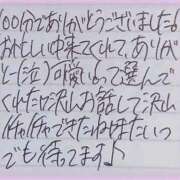 00分でありがとうございました!
お忙しい中来てくれて、ありがと
に(泣)可愛いって選んで
くれた!沢山お話して沢山
イチャイチャできたねほまたいつ
でも待ってます♪